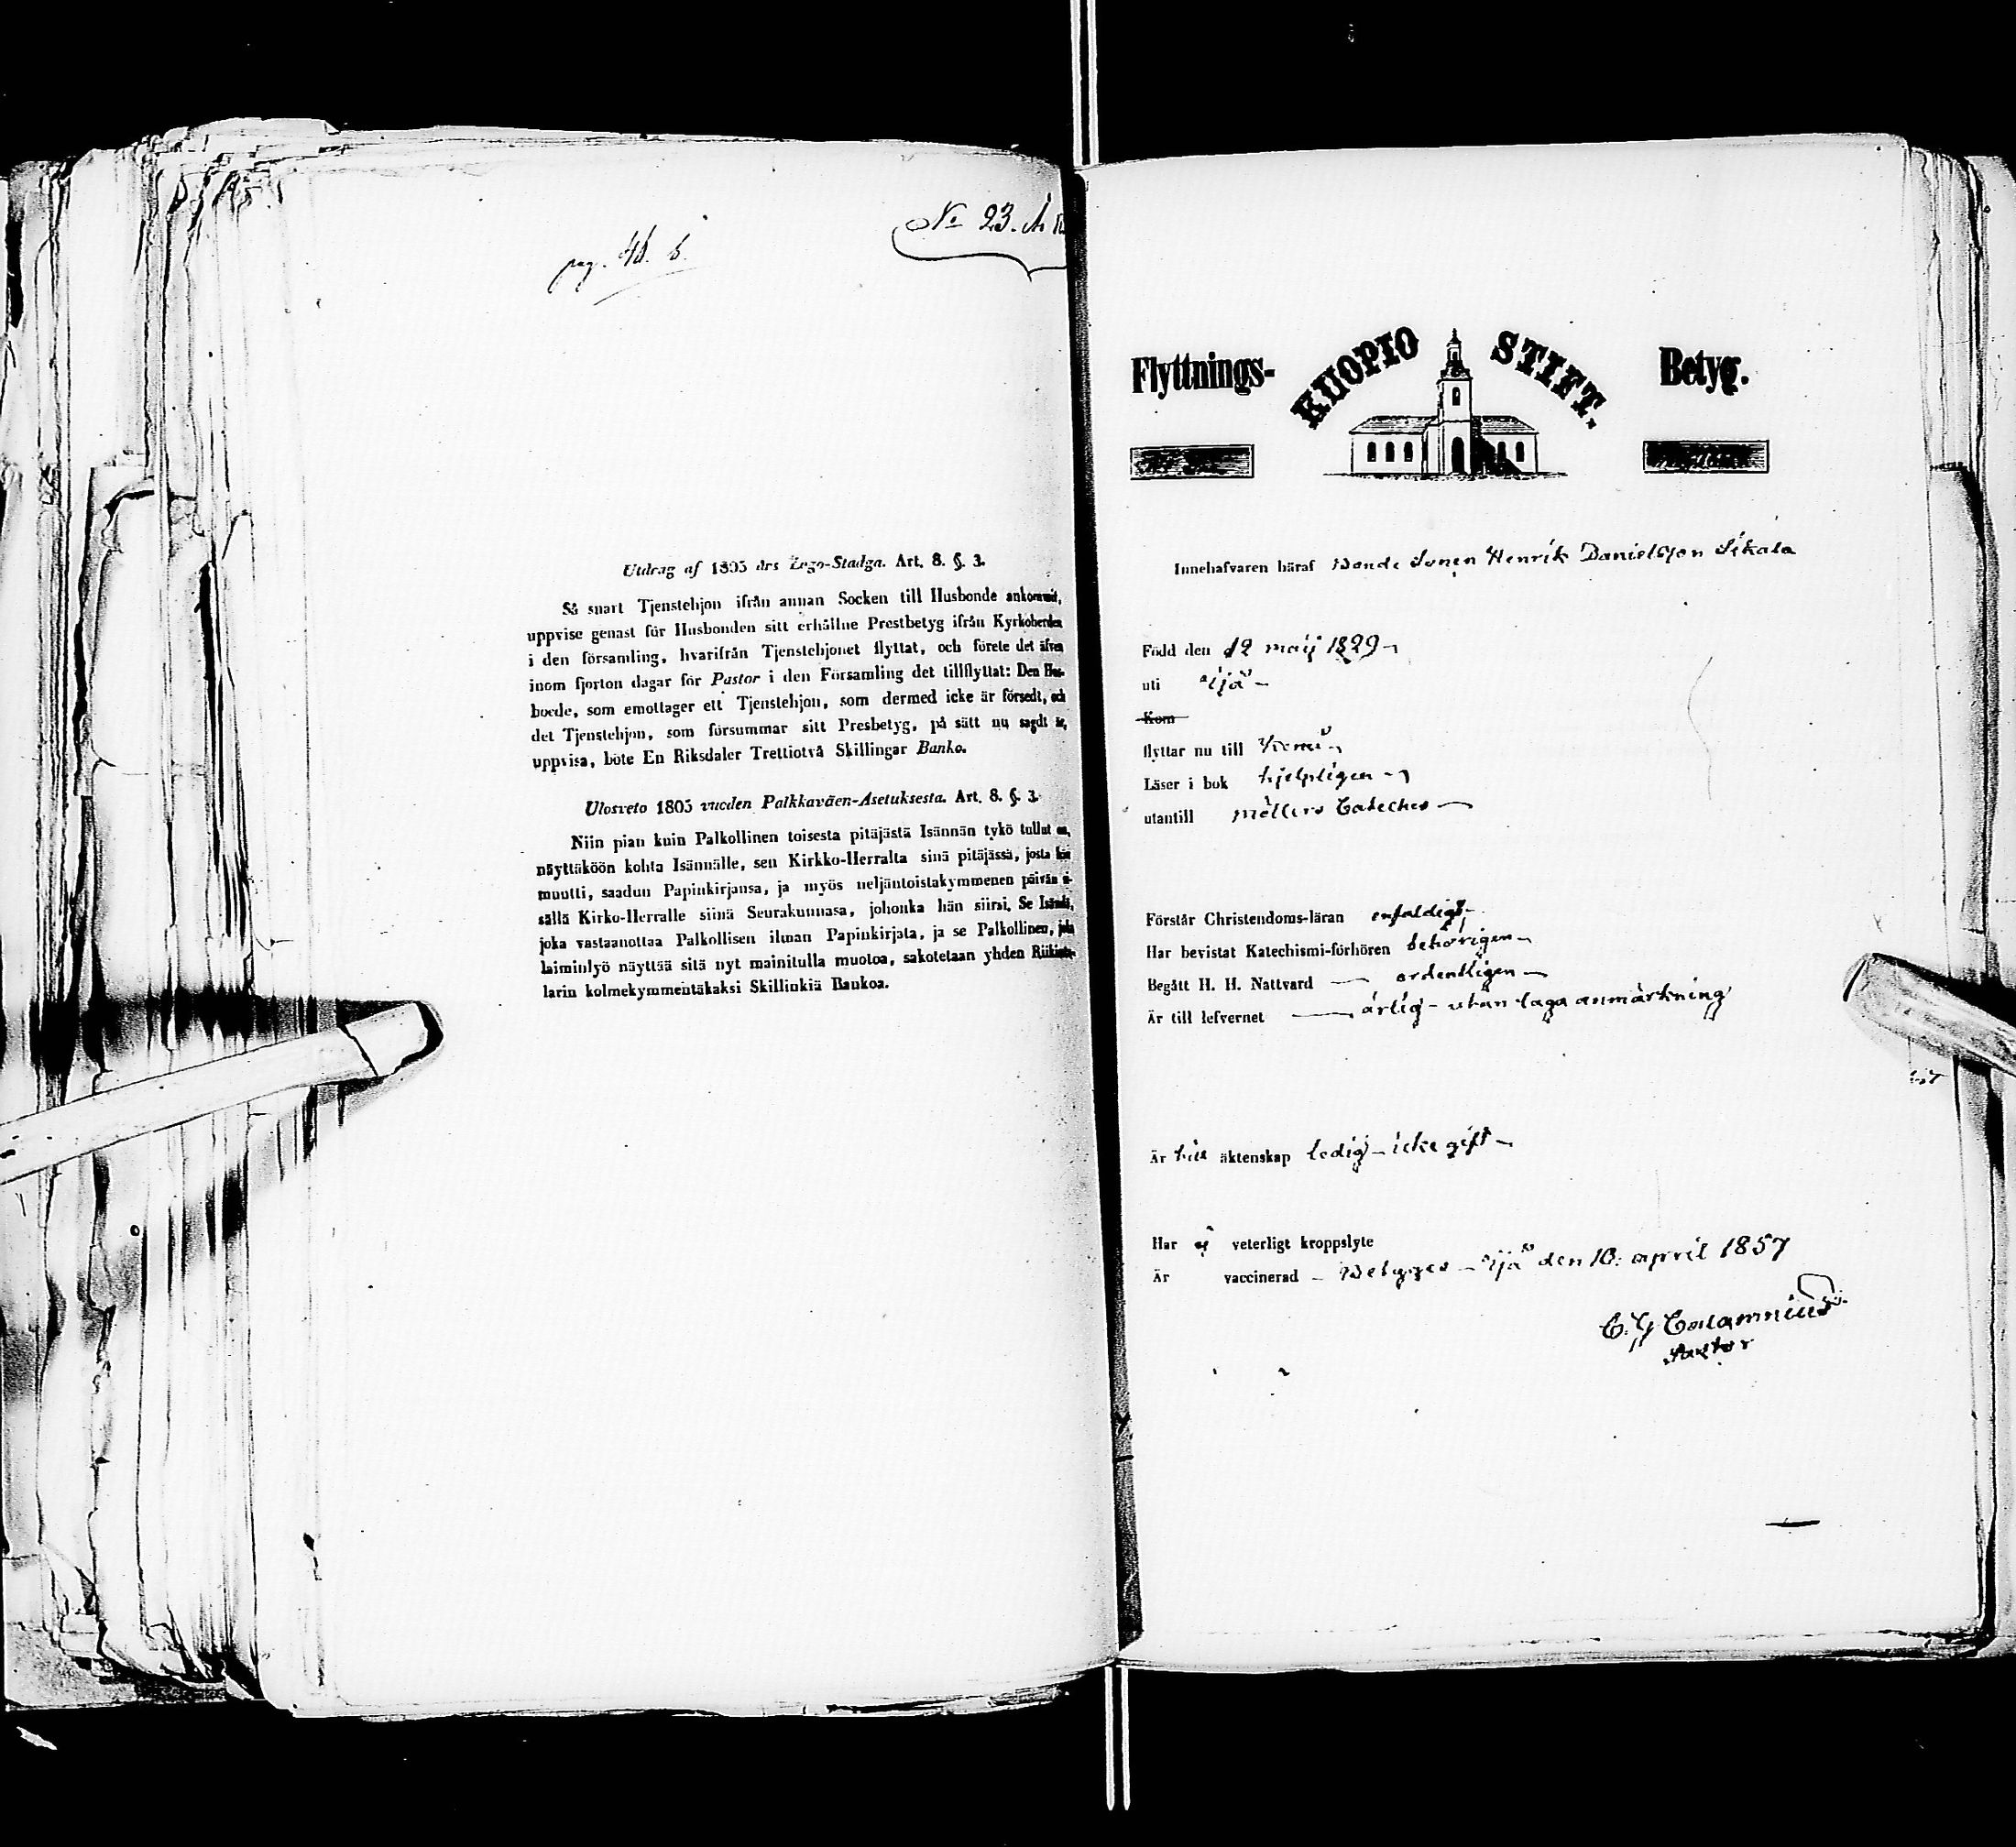 pag. 46. b.
No 23.
Utdrag af 1805 års Lego-Stadga. Art. 8. §. 3.
Så snart Tjenstehjon ifrån annan Socken till Husbonde ankommit,
uppvise genast för Husbonden sitt erhållne Prestbetyg ifrån Kyrkoherden
i den församling, hvarifrån Tjenstehjonet flyttat, och förete det äfven
inom fjorton dagar för Pastor i den Församling det tillflyttat: Den Hus-
bonde, som emottager ett Tjenstehjon, som dermed icke är försedt, och
det Tjenstehjon, som försummar sitt Presbetyg, på sätt nu sagdt är,
uppvisa, böte En Riksdaler Trettiotvå Skillingar Banko.
Ulosveto 1805 vuoden Palkkaväen-Asetuksesta. Art. 8. §. 3.
Niin pian kuin Palkollinen toisesta pitäjästä Isännän tykö tullut on,
näyttäköön kohta Isännälle, sen Kirkko-Herralta sinä pitäjässä, josta hän
muutti, saadun Papinkirjansa, ja myös neljäntoistakymmenen päivän si-
sällä Kirko-Herralle siinä Seurakunnasa, johonka hän siirsi. Se Isäntä,
joka vastaanottaa Palkollisen ilman Papinkirjata, ja se Palkollinen, joka
laiminlyö näyttää sitä nyt mainitulla muotoa, sakotetaan yhden Riikinta-
larin kolmekymmentäkaksi Skillinkiä Bankoa.
Flyttnings- KUOPIO STIFT. Betyg.
Innehafvaren häraf Bonde Sonen Henrik Danielsson Sikala
Född den 12 maij 1829
uti Ijå
Kom
flyttar nu till Kemi
Läser i bok hjelpligen
utantill möllers Cateches
Förstår Christendoms-läran enfaldigt
Har bevistat Katechismi-förhören behörigen
Begått H. H. Nattvard ordentligen
Är till lefvernet ärlig - utan laga anmärkning
Är till äktenskap ledig - icke gift
Har ej veterligt kroppslyte
Är vaccinerad - Betygges - Ijå den 10: april 1857
C. G Calamnius
Pastor